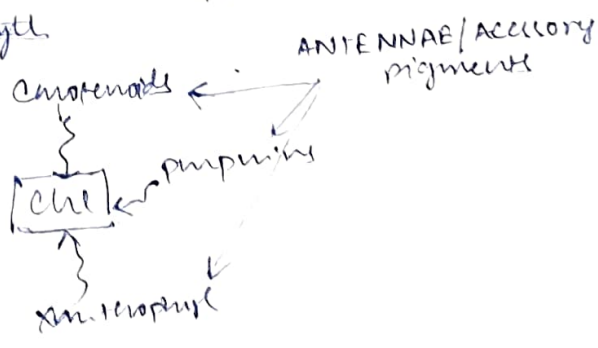 gth
ANTENNAE/Accessory
pigments
Carotenoids
purpurins
Chl
Xanthophyl